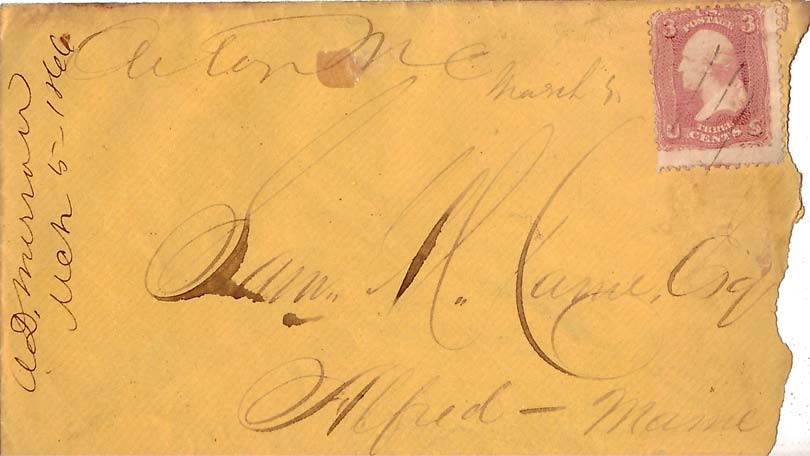 Acton Me
March 5.
U.S.
POSTAGE
3 3
THREE
CENTS
Sam. M. Came, Esq
Alfred – Maine
A.D. Merrow
Mch 5-1866